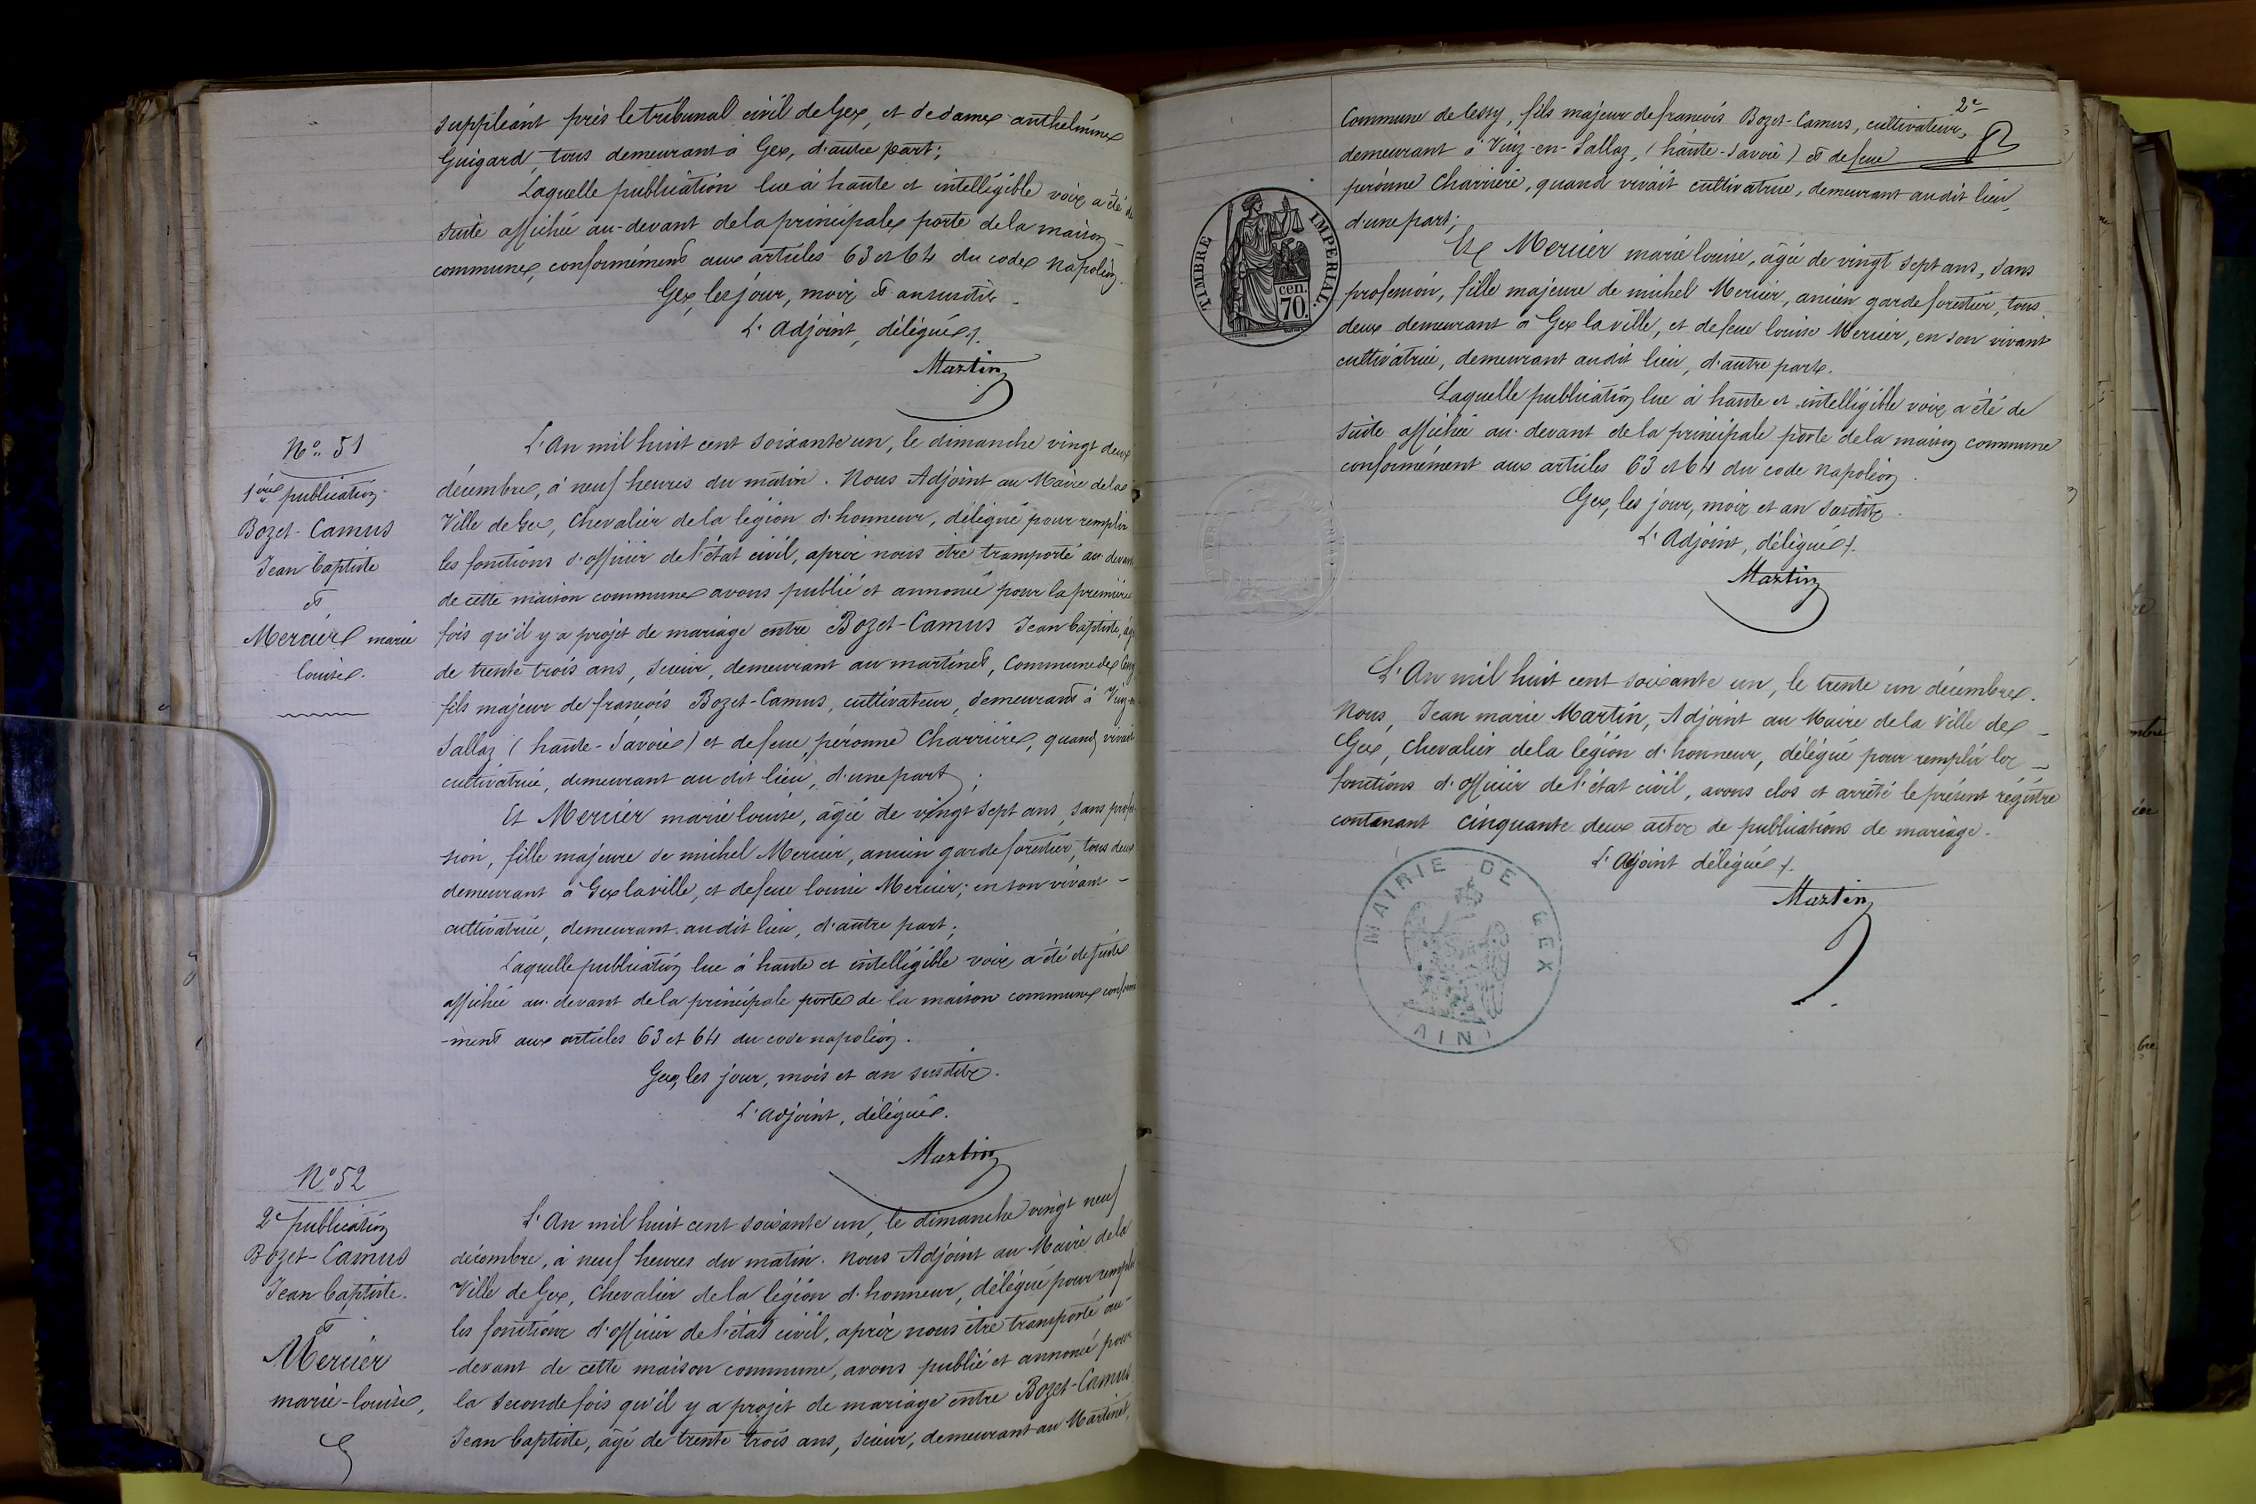 suppléant près le tribunal civil de Gex, et de dame anthelmine
Guigard, tous demeurant à Gex, d'autre part;
Laquelle publication lue à haute et intelligible voix a été de
suite affichée au-devant de la principale porte de la maison
commune, conformément aux articles 63 et 64 du code napoléon.
Gex, les jour, mois et an susdits.
L'Adjoint, délégué.
Martin
N° 51
1ère publication
Bozet-Camus
Jean Baptiste
et
Mercier marie
louise.
L'An mil huit cent soixante un, le dimanche vingt deux
décembre, à neuf heures du matin. Nous Adjoint au Maire de la
Ville de Gex, Chevalier de la légion d'honneur, délégué pour remplir
les fonctions d'officier de l'état civil, après nous être transporté au devant
de cette maison commune avons publié et annoncé pour la première
fois qu'il y a projet de mariage entre Bozet-Camus Jean baptiste, âgé
de trente trois ans, scieur, demeurant au martinet, Commune de Cessy
fils majeur de françois Bozet-Camus, cultivateur, demeurant à Viuz-en-
Sallaz (haute-Savoie) et de feue péronne Charrière, quand vivait
cultivatrice, demeurant au dit lieu, d'une part;
Et Mercier marie louise, âgée de vingt sept ans, sans profes-
sion, fille majeure de michel Mercier, ancien garde forestier, tous deux
demeurant à Gex la ville, et de feue louise Mercier, en son vivant -
cultivatrice, demeurant audit lieu, d'autre part;
Laquelle publication lue à haute et intelligible voix a été de suite
affichée au-devant de la principale porte de la maison commune conformé
-ment aux articles 63 et 64 du code napoléon.
Gex, les jour, mois et an susdits.
L'adjoint, délégué.
Martin
N° 52
2e publication
Bozet-Camus
Jean baptiste.
et
Mercier
marie-louise,
L'An mil huit cent soixante un, le dimanche vingt neuf
décembre, à neuf heures du matin. Nous Adjoint au Maire de la
Ville de Gex, Chevalier de la légion d'honneur, délégué pour remplir
les fonctions d'officier de l'état civil, après nous être transporté au-
-devant de cette maison commune, avons publié et annoncé pour
la seconde fois qu'il y a projet de mariage entre Bozet-Camus
Jean baptiste, âgé de trente trois ans, scieur, demeurant au Martinet,
2e
Commune de Cessy, fils majeur de françois Bozet-Camus, cultivateur,
demeurant à Viuz-en-Sallaz, (haute-Savoie) et de feue
péronne Charrière, quand vivait cultivatrice, demeurant audit lieu,
d'une part;
TIMBRE IMPÉRIAL
70 cen.
Et Mercier marie louise, âgée de vingt sept ans, sans
profession, fille majeure de michel Mercier, ancien garde forestier, tous
deux demeurant à Gex la ville, et de feue louise Mercier, en son vivant
cultivatrice, demeurant audit lieu, d'autre part.
Laquelle publication lue à haute et intelligible voix a été de
suite affichée au-devant de la principale porte de la maison commune
conformément aux articles 63 et 64 du code napoléon.
Gex, les jour, mois et an susdits.
L'Adjoint, délégué.
Martin
L'An mil huit cent soixante un, le trente un décembre.
Nous, Jean marie Martin, Adjoint au Maire de la Ville de -
Gex, Chevalier de la légion d'honneur, délégué pour remplir les -
fonctions d'officier de l'état civil, avons clos et arrêté le présent régistre
contenant cinquante deux actes de publications de mariage.
L'Adjoint délégué.
Martin
MAIRIE DE GEX
(AIN)